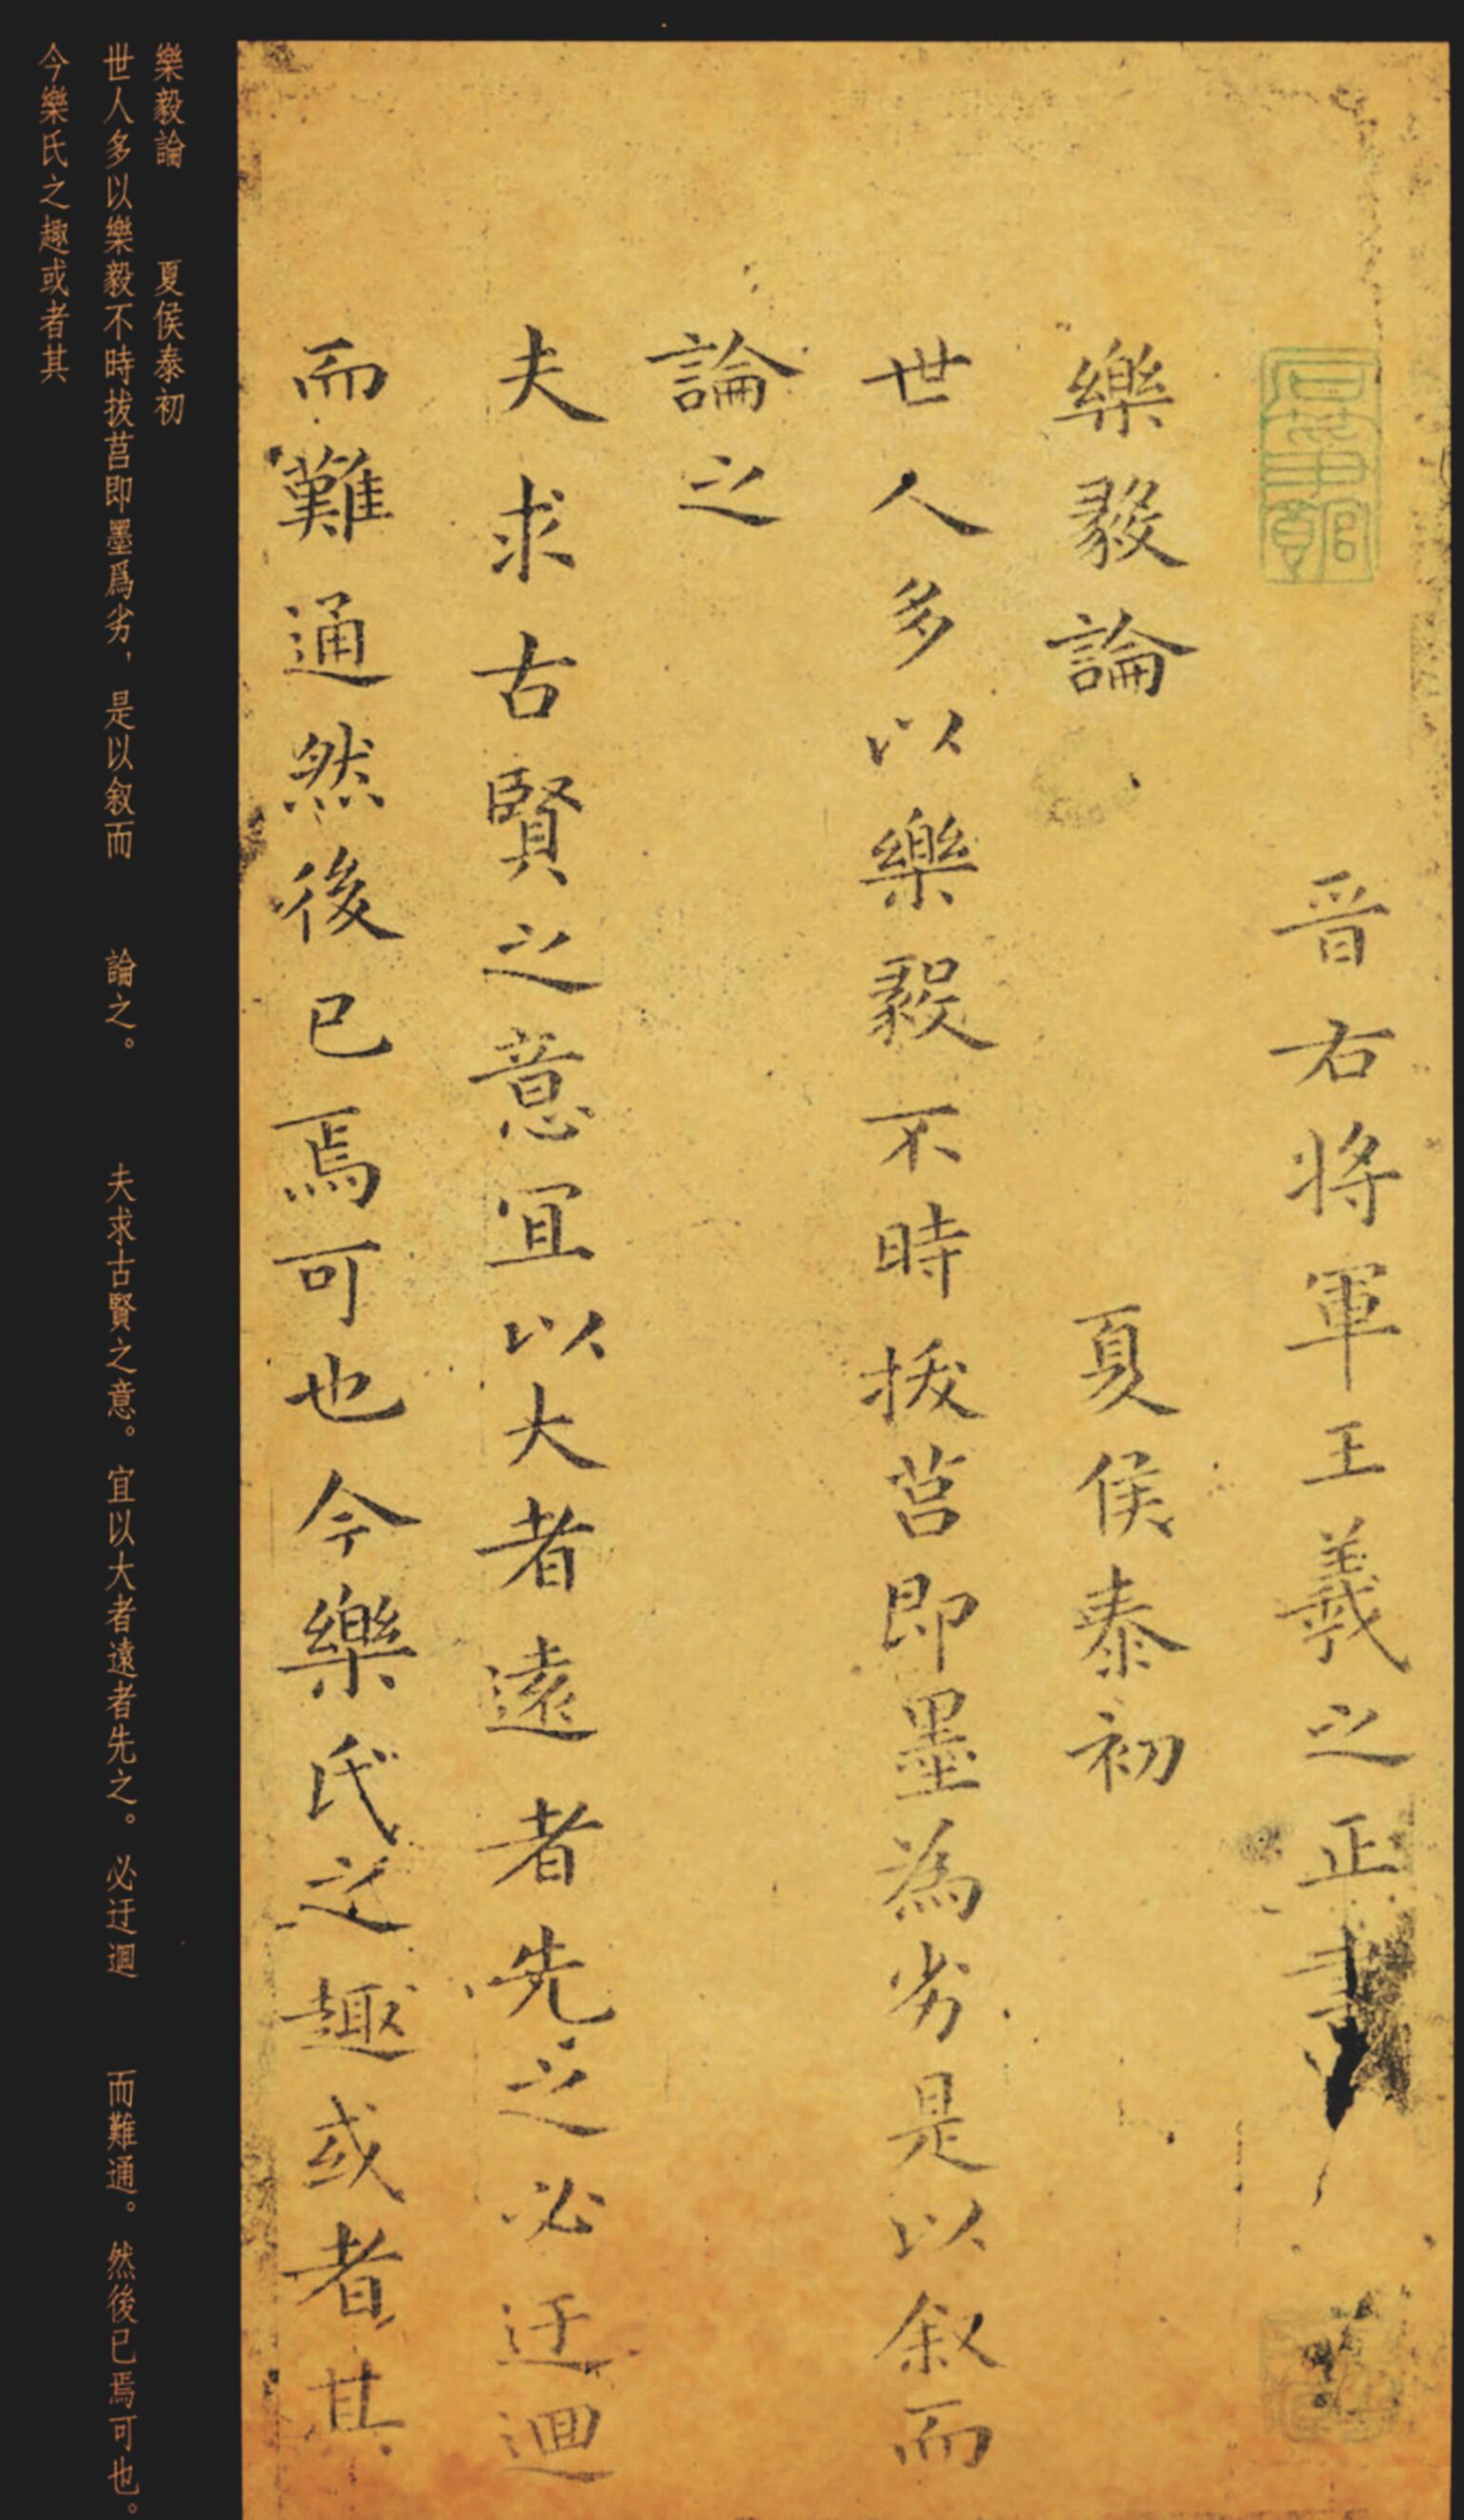 晉右將軍王羲之正書
樂毅論 夏侯泰初
世人多以樂毅不時拔莒即墨為劣是以叙而
論之
夫求古賢之意宜以大者遠者先之必迂迴
而難通然後已焉可也今樂氏之趣或者其
樂毅論 夏侯泰初
世人多以樂毅不時拔莒即墨爲劣，是以叙而 論之。 夫求古賢之意。宜以大者遠者先之。必迂迴 而難通。然後已焉可也。
今樂氏之趣或者其